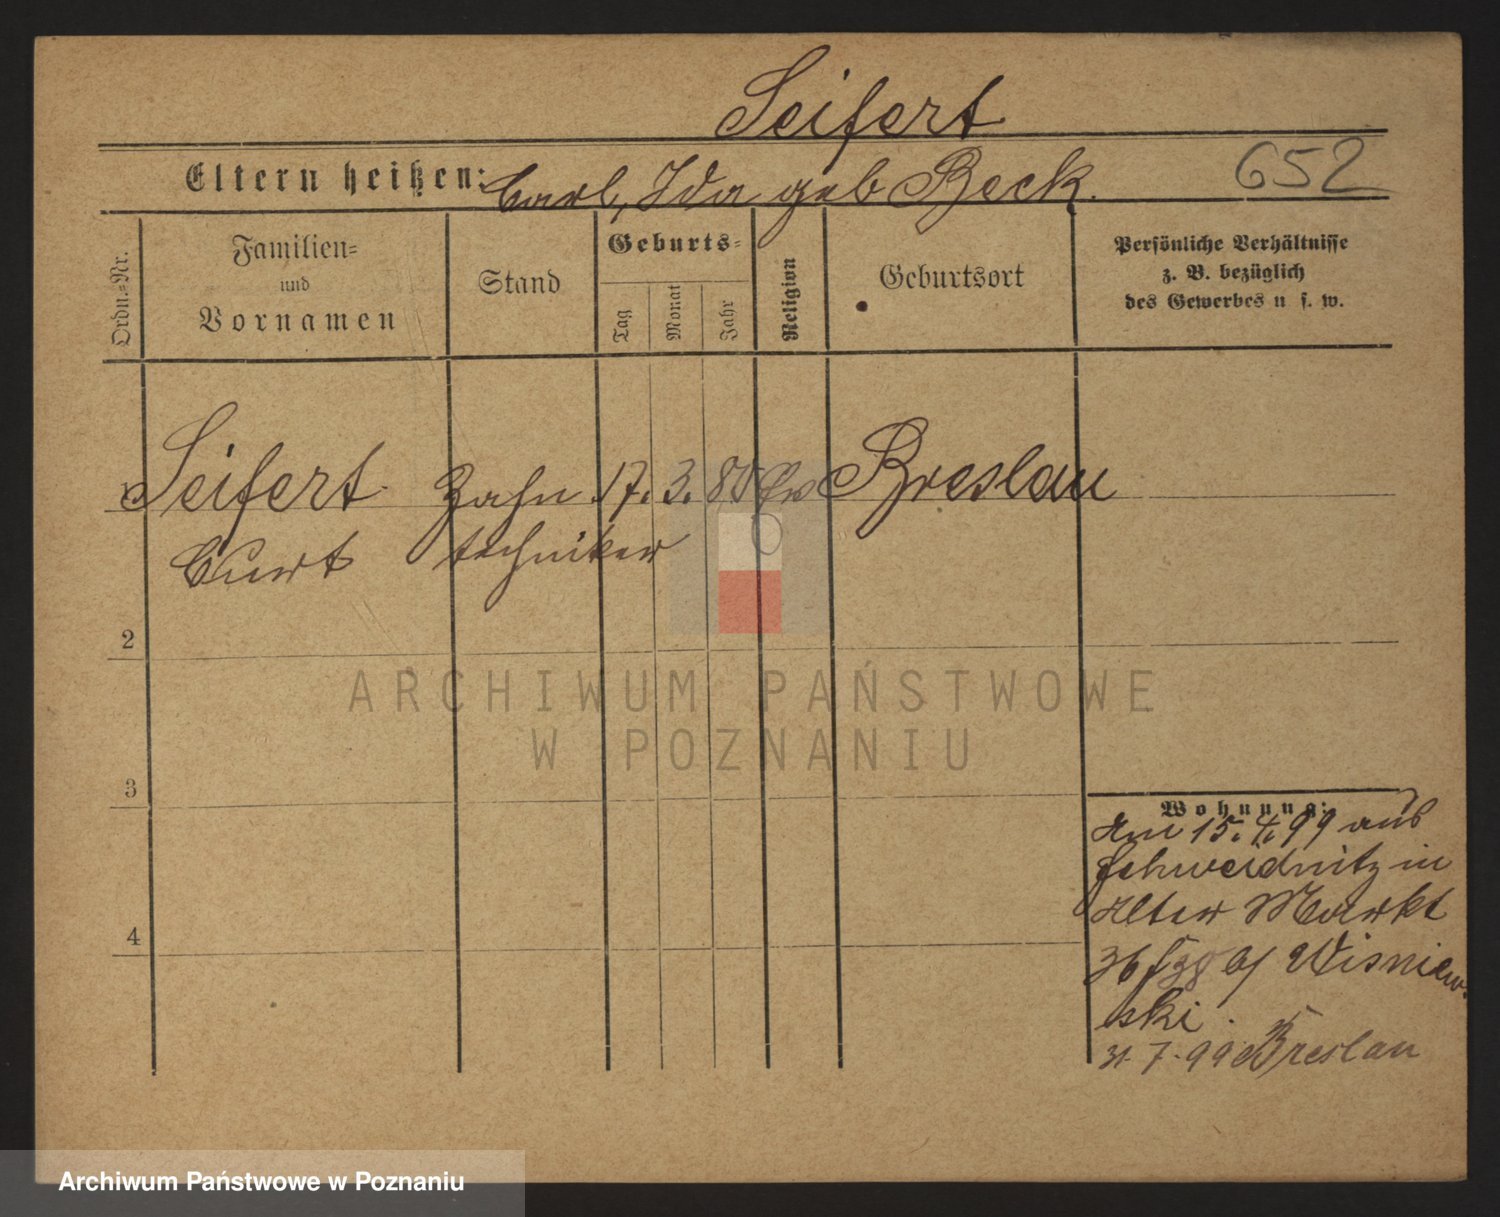 Seifert
Eltern heißen: Carl, Ida geb Beck.
652
Ordn.-Nr.
Familien-
und
Vornamen
Stand
Geburts-
Tag
Monat
Jahr
Religion
Geburtsort
Persönliche Verhältnisse
z. B. bezüglich
des Gewerbes u s. w.
1 Seifert Zahn 17. 3. 80 Ev Breslau
Curt techniker
2
3
4
Wohnung:
Am 15. 4. 99 aus
Schweidnitz in
Alter Markt
36 b/ Wisniew-
ski.
31. 7. 99 Breslau
ARCHIWUM PAŃSTWOWE
W POZNANIU
Archiwum Państwowe w Poznaniu